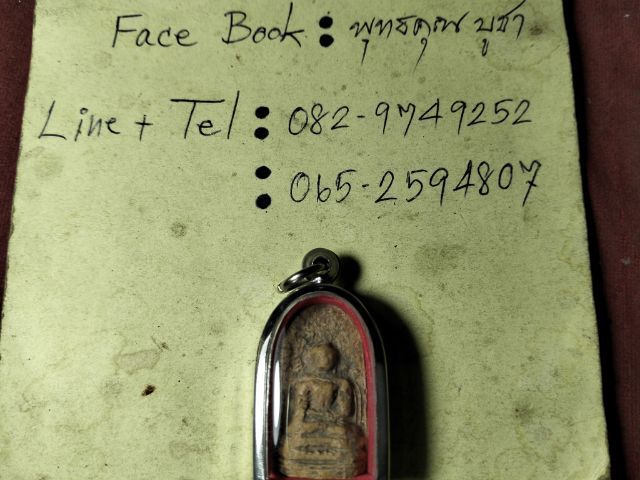 Face Book : พุทธคุณ บูชา
Line + Tel : 082-9749252
: 065-2594807